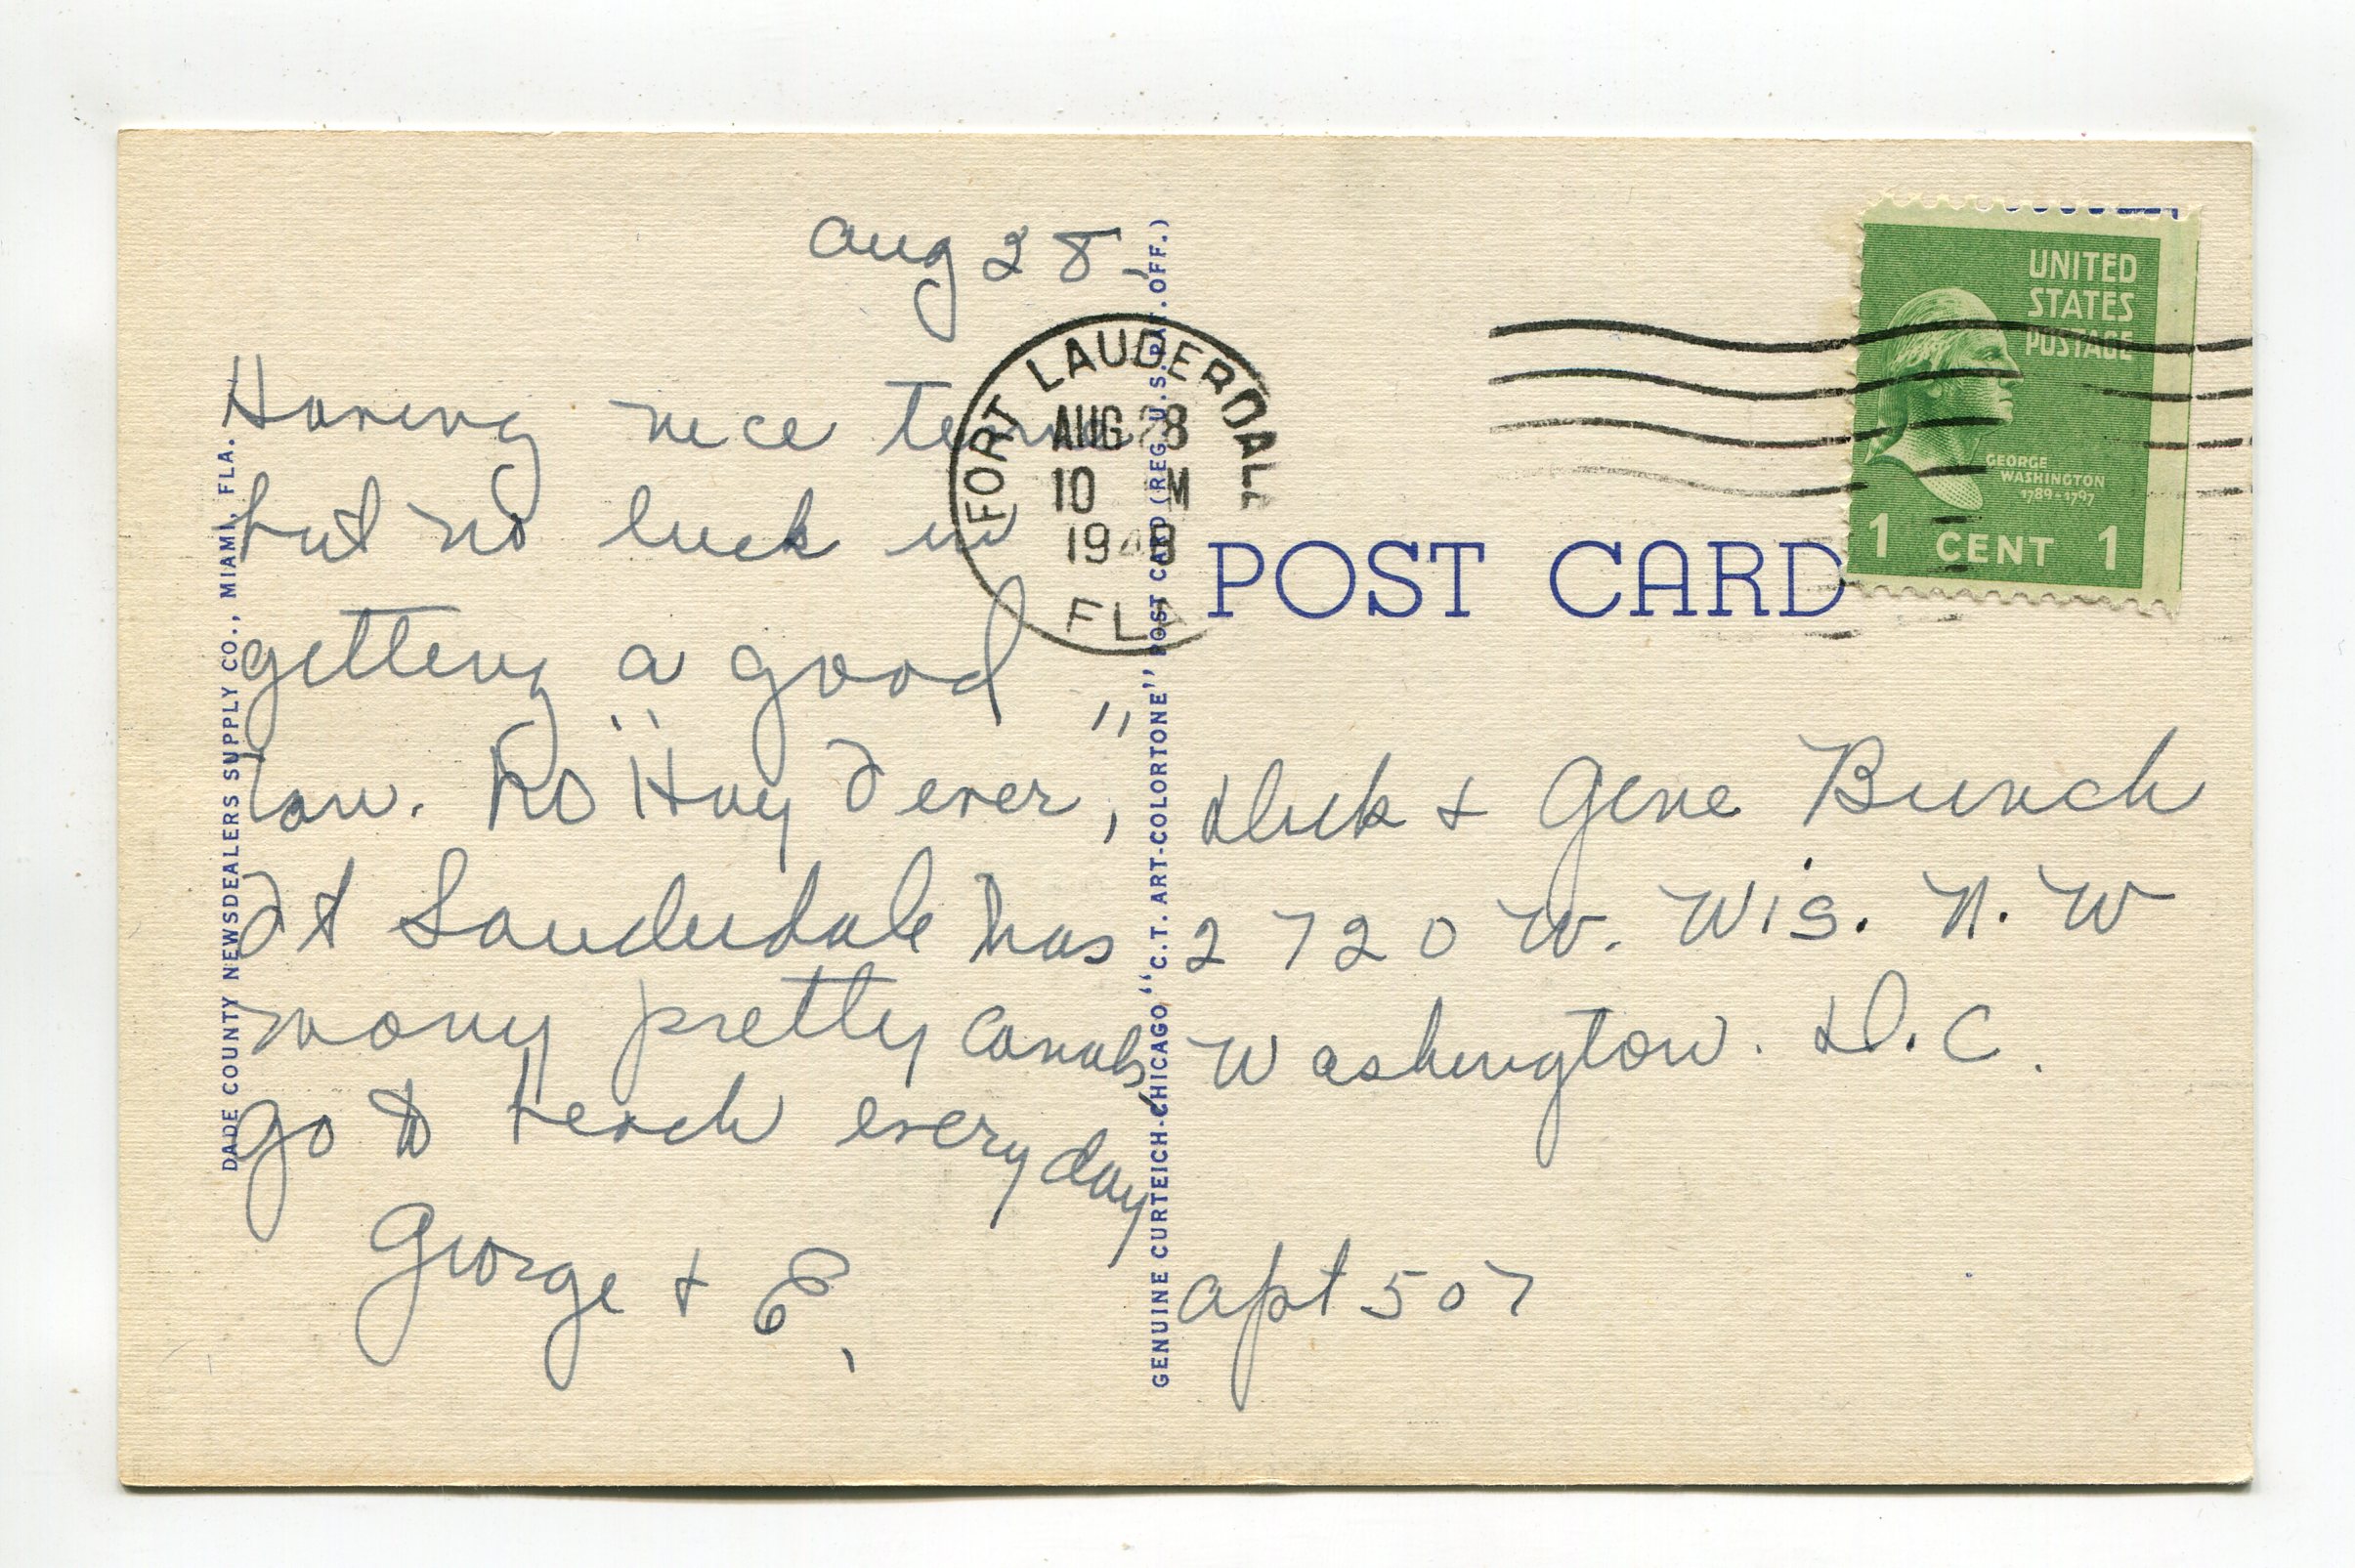 Aug 28,
Having nice time
but no luck in
getting a good
tan. No "Hay Fever",
Ft Lauderdale has
many pretty canals,
go to beach every day
George + E.
FORT LAUDERDALE
AUG 28
10 M
1948
FLA
UNITED
STATES
POSTAGE
GEORGE
WASHINGTON
1789-1797
1 CENT 1
POST CARD
Dick + Gene Bunch
2720 W. Wis. N.W
Washington. D.C.
Apt 507
DADE COUNTY NEWSDEALERS SUPPLY CO., MIAMI, FLA.
GENUINE CURTEICH-CHICAGO "C.T. ART-COLORTONE" POST CARD (REG. U.S. PAT. OFF.)